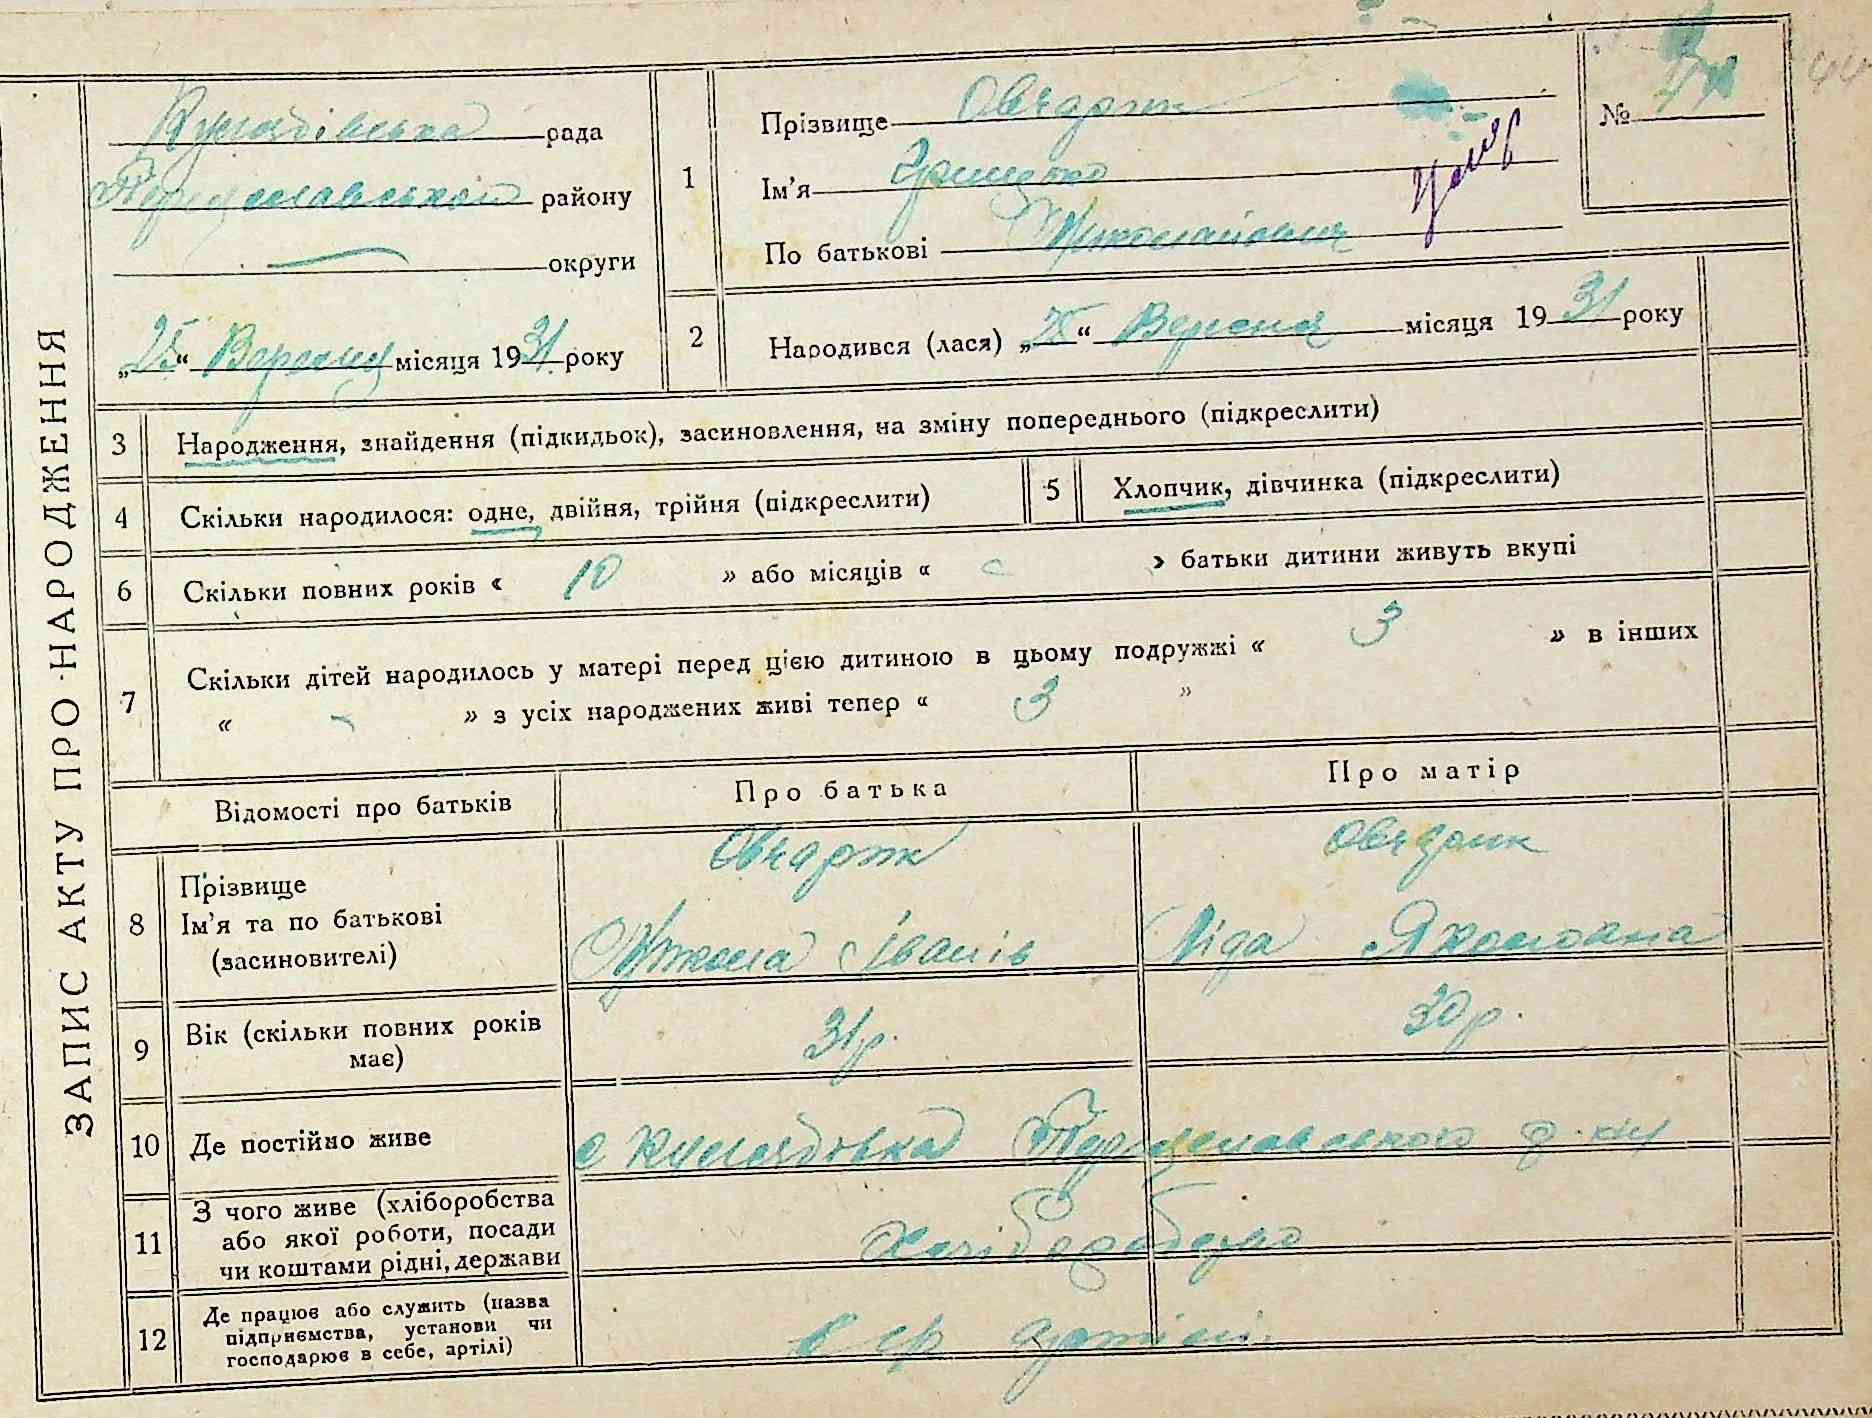 ЗАПИС АКТУ ПРО НАРОДЖЕННЯ
рада
району
округи
„25“ Вересня місяця 1931 року
1
Прізвище Овчарик
Ім’я Грицько
По батькові Миколайович
Умер
№
2
Народився (лася) „25“ Вересня місяця 1931 року
3
Народження, знайдення (підкидьок), засиновлення, на зміну попереднього (підкреслити)
4
Скільки народилося: одне, двійня, трійня (підкреслити)
5
Хлопчик, дівчинка (підкреслити)
6
Скільки повних років « 10 » або місяців « – » батьки дитини живуть вкупі
7
Скільки дітей народилось у матері перед цією дитиною в цьому подружжі « 3 » в інших
« – » з усіх народжених живі тепер « 3 »
Відомості про батьків
Про батька
Про матір
8
Прізвище
Ім’я та по батькові
(засиновителі)
Овчарик
Микола Іванів
Овчарик
Ліда Якововна
9
Вік (скільки повних років
має)
31 р.
30 р.
10
Де постійно живе
с
11
З чого живе (хліборобства
або якої роботи, посади
чи коштами рідні, держави
Хліборобство
12
Де працює або служить (назва
підприємства, установи чи
господарює в себе, артілі)
в с/г артілі.